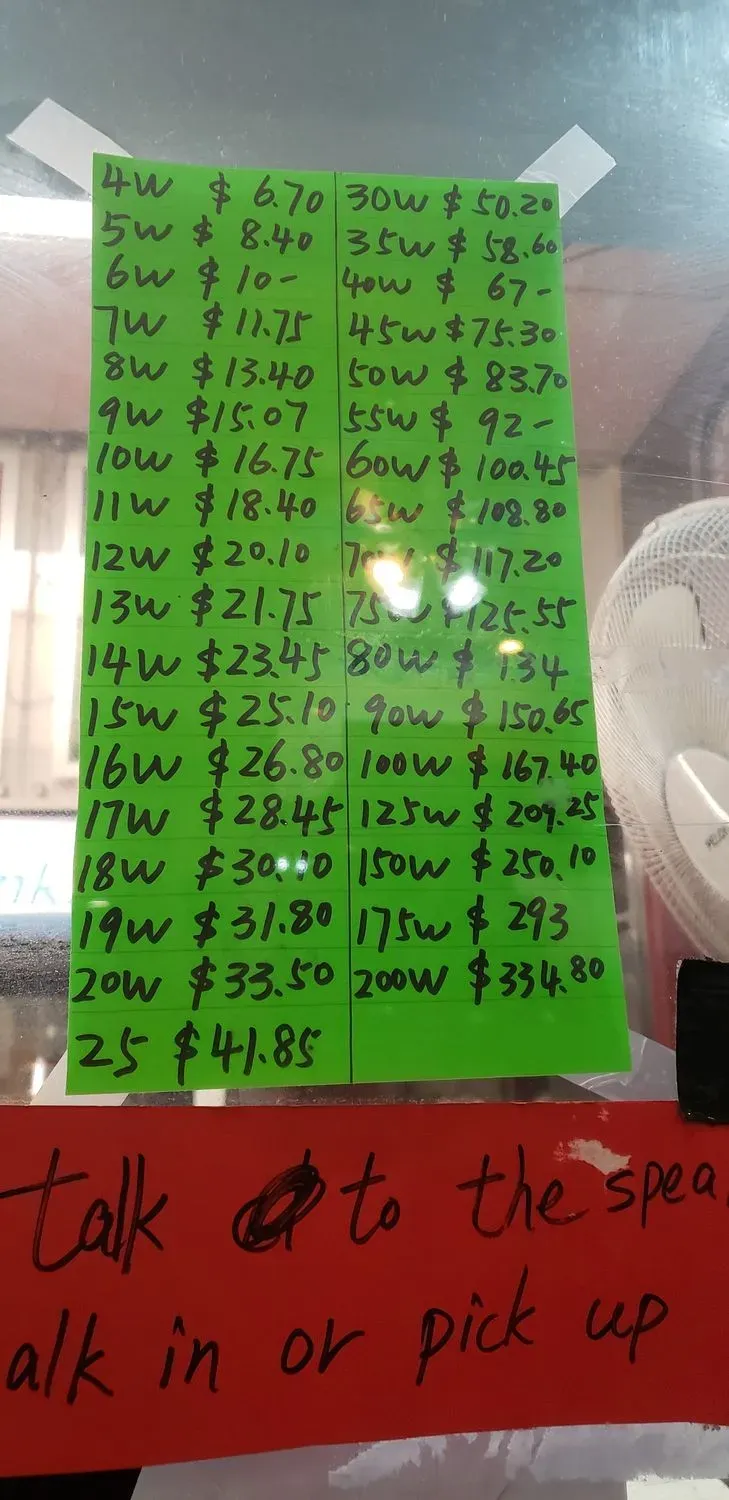 4W $ 6.70
5W $ 8.40
6W $ 10-
7W $ 11.75
8W $ 13.40
9W $15.07
10W $ 16.75
11W $ 18.40
12W $ 20.10
13W $ 21.75
14W $ 23.45
15W $ 25.10
16W $ 26.80
17W $ 28.45
18W $ 30.10
19W $ 31.80
20W $ 33.50
25 $ 41.85
30W $ 50.20
35W $ 58.60
40W $ 67-
45W $75.30
50W $ 83.70
55W $ 92-
60W $ 100.45
65W $ 108.80
$ 117.20
75W $125.55
80W $ 134
90W $ 150.65
100W $ 167.40
125W $ 209.25
150W $ 250.10
175W $ 293
200W $ 334.80
talk to the spea
alk in or pick up